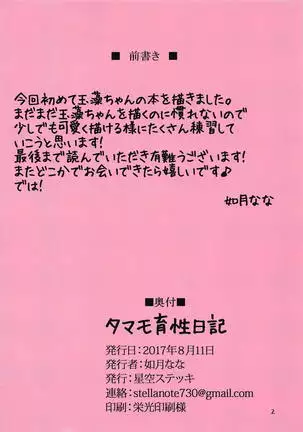 ■ 前書き ■
今回初めて玉藻ちゃんの本を描きました。
まだまだ玉藻ちゃんを描くのに慣れないので
少しでも可愛く描ける様にたくさん練習して
いこうと思います!
最後まで読んでいただき有難うございます!
またどこかでお会いできたら嬉しいです♪
では!
如月なな
■奥付■
タマモ育性日記
発行日:2017年8月11日
発行者:如月なな
発行:星空ステッキ
連絡:stellanote730@gmail.com
印刷:栄光印刷様
2